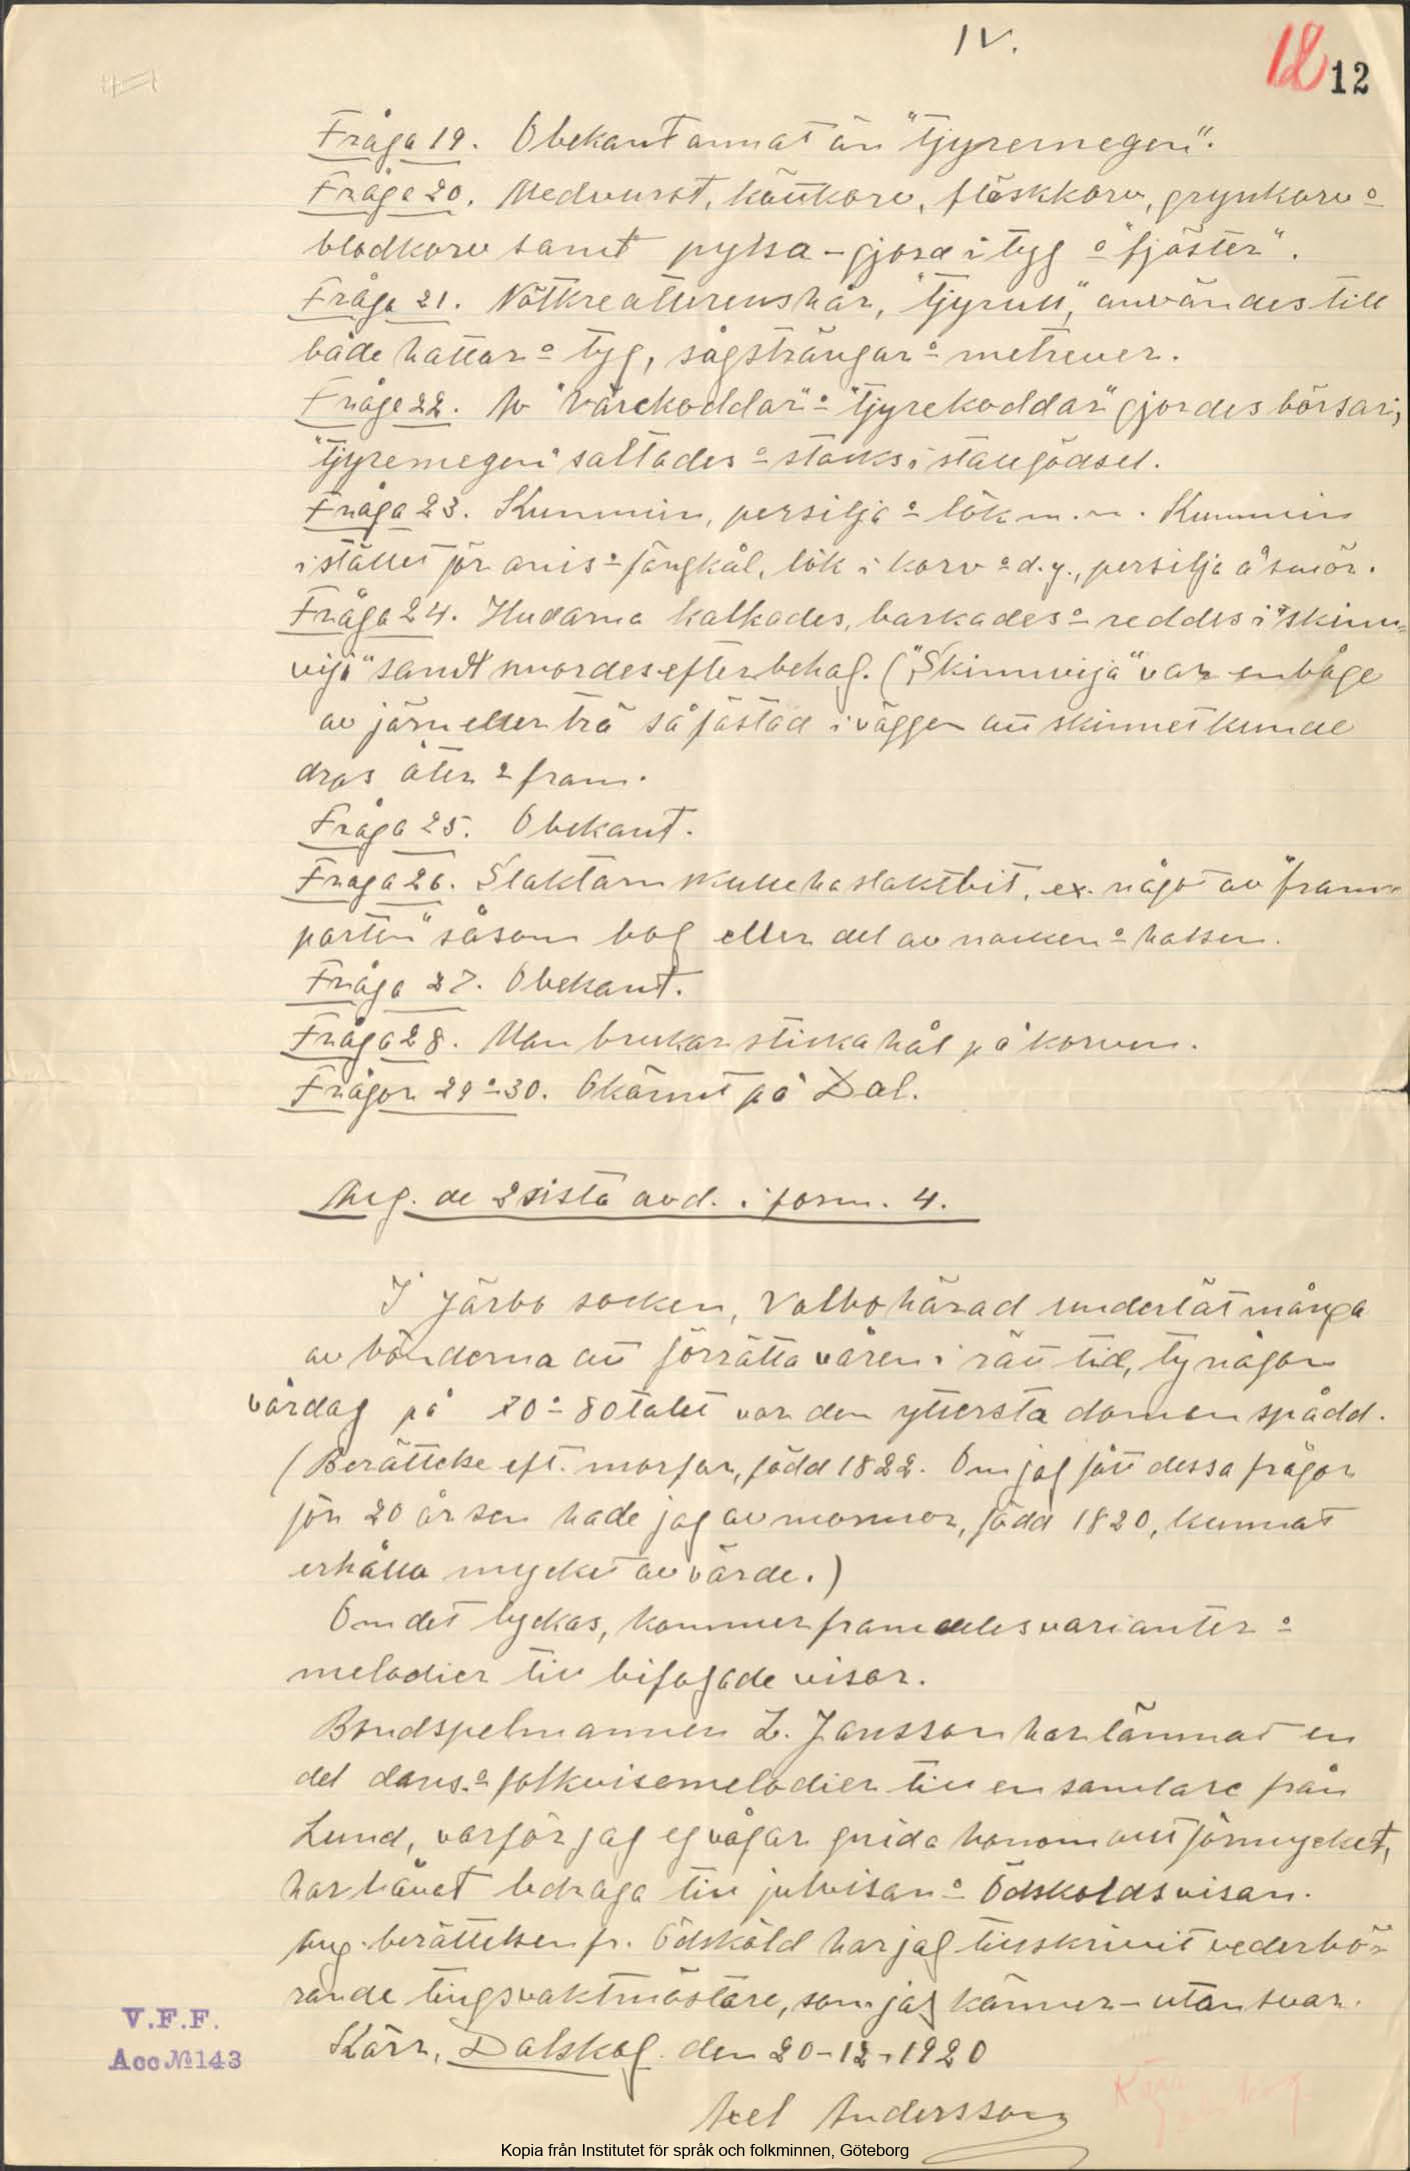 IV.
12 12
Fråga 19. Obekant annat än "tjyremegen".
Fråga 20. Medvurst, köttkorv, fläskkorv, grynkorv o
blodkorv samt pylsa – gjord i tyg o "fjäster".
Fråga 21. Nötkreaturens hår, "tjyrull", användes till
både hattar o tyg, sågsträngar o metrever.
Fråga 22. Av "värekoddar" o "tjyrekoddar" gjordes börsar;
"tjyremegen" saltades o stacks i stallgödsel.
Fråga 23. Kummin, persilja o lök m.m. Kummin
i stället för anis o fänkål, lök i korv o d.y., persilja å smör.
Fråga 24. Hudarna kalkades, barkades o reddes i "skinn-
vija" samt smordes efter behag. ("Skinnvija" var en båge
av järn eller trä så fästad i väggen att skinnet kunde
dras åter o fram.
Fråga 25. Obekant.
Fråga 26. Slaktarn skulle ha slaktbit, ex. något av "fram-
parten" såsom bog eller del av nacken o halsen.
Fråga 27. Obekant.
Fråga 28. Man brukar sticka hål på korven.
Frågor 29 o 30. Okännt på Dal.
Ang. de 2 sista avd. i form. 4.
I Järbo socken, Valbo härad underlät många
av bönderna att förrätta våren i rätt tid, ty någon
vårdag på 70 o 80 talet var den yttersta domen spådd.
(Berättelse eft. morfar, född 1822. Om jag fått dessa frågor
för 20 år sen hade jag av mormor, född 1820, kunnat
erhålla mycket av värde.)
Om det lyckas, kommer framdeles varianter o
melodier till bifogade visor.
Bondspelmannen L. Jansson har lämnat en
del dans- o folkvisemelodier till en samlare från
Lund, varför jag ej vågar gnida honom allt för mycket,
har låvat bidraga till julvisan o Ödskoldsvisan.
Ang. berättelsen fr. Ödsköld har jag tillskrivit vederbö-
rande tingsvaktmästare, som jag känner – utan svar.
Kärr, Dalskog den 20-12-1920
Axel Andersson
V.F.F.
Acc № 143
Kopia från Institutet för språk och folkminnen, Göteborg